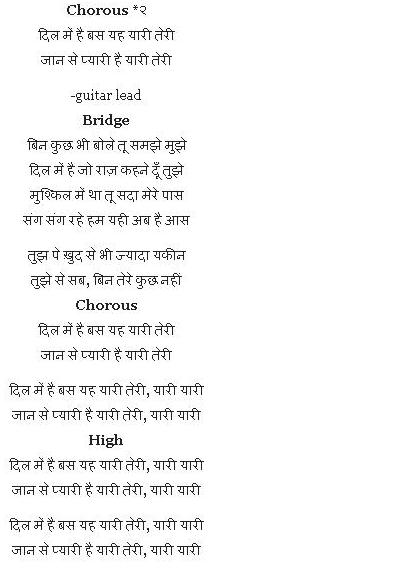 Chorous *२
दिल में है बस यह यारी तेरी
जान से प्यारी है यारी तेरी
-guitar lead
Bridge
बिन कुछ भी बोले तू समझे मुझे
दिल में है जो राज़ कहने दूँ तुझे
मुश्किल में था तू सदा मेरे पास
संग संग रहे हम यही अब है आस
तुझ पे खुद से भी ज्यादा यकीन
तुझे से सब, बिन तेरे कुछ नहीं
Chorous
दिल में है बस यह यारी तेरी
जान से प्यारी है यारी तेरी
दिल में है बस यह यारी तेरी, यारी यारी
जान से प्यारी है यारी तेरी, यारी यारी
High
दिल में है बस यह यारी तेरी, यारी यारी
जान से प्यारी है यारी तेरी, यारी यारी
दिल में है बस यह यारी तेरी, यारी यारी
जान से प्यारी है यारी तेरी, यारी यारी